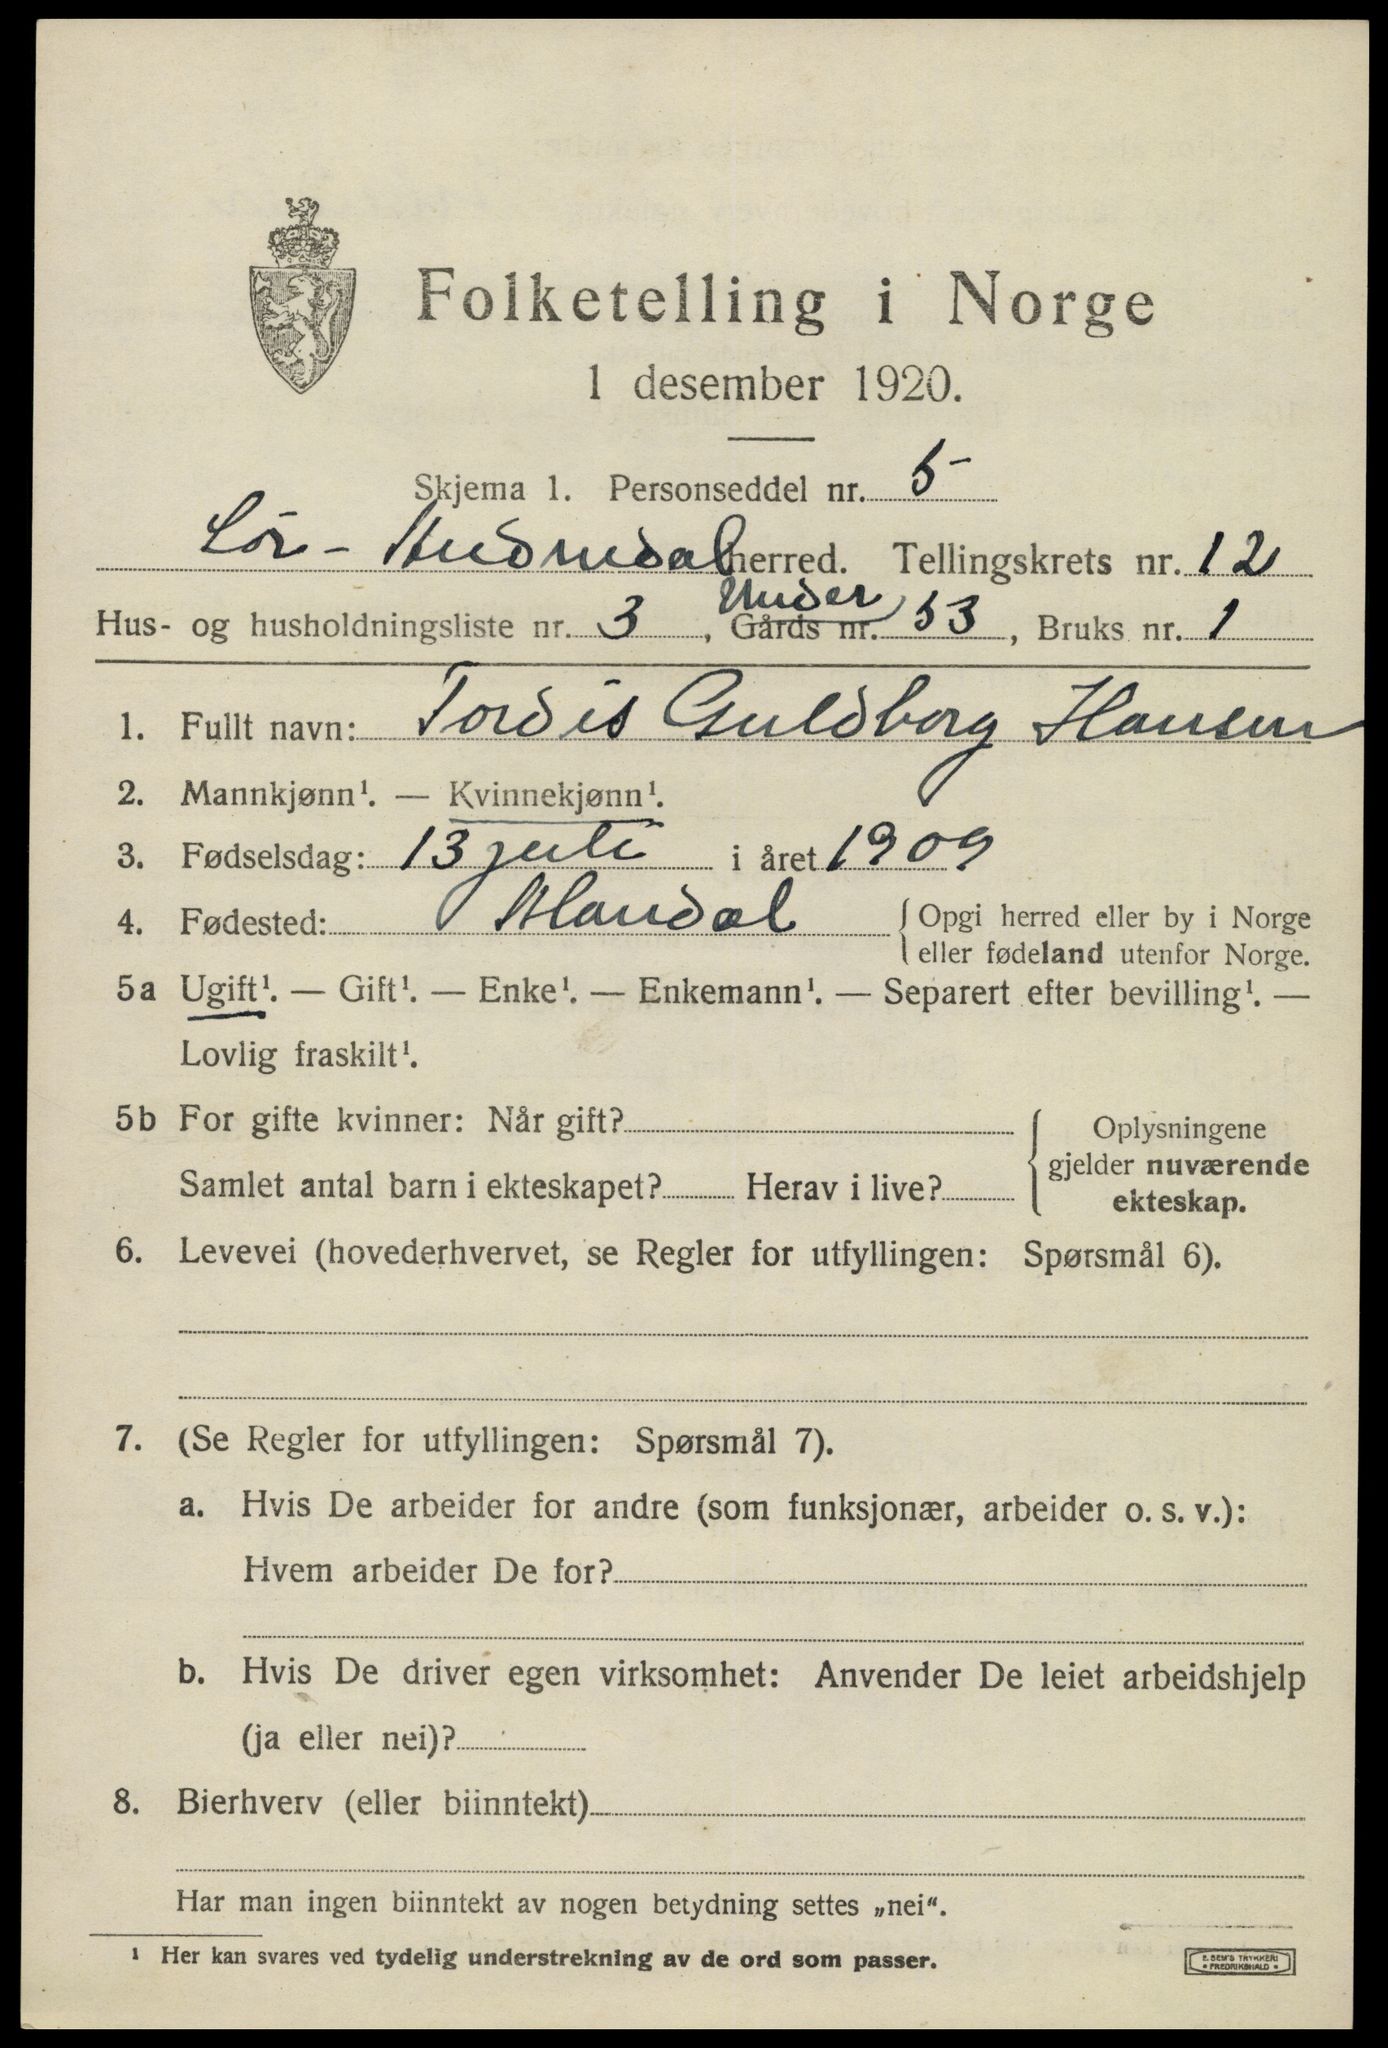 Folketelling i Norge
1 desember 1920.
Skjema 1. Personseddel nr. 5
Sör-Audnedal herred. Tellingskrets nr. 12
Under
Hus- og husholdningsliste nr. 3, Gårds nr. 53, Bruks nr. 1
1. Fullt navn: Tordis Guldborg Hansen
2. Mannkjønn¹. — Kvinnekjønn¹.
3. Fødselsdag: 13 juli i året 1909
4. Fødested: Mandal { Opgi herred eller by i Norge
eller fødeland utenfor Norge.
5a Ugift¹. — Gift¹. — Enke¹. — Enkemann¹. — Separert efter bevilling¹. —
Lovlig fraskilt¹.
5b For gifte kvinner: Når gift?
Samlet antal barn i ekteskapet? Herav i live?
Oplysningene
gjelder nuværende
ekteskap.
6. Levevei (hovederhvervet, se Regler for utfyllingen: Spørsmål 6).
7. (Se Regler for utfyllingen: Spørsmål 7).
a. Hvis De arbeider for andre (som funksjonær, arbeider o. s. v.):
Hvem arbeider De for?
b. Hvis De driver egen virksomhet: Anvender De leiet arbeidshjelp
(ja eller nei)?
8. Bierhverv (eller biinntekt)
Har man ingen biinntekt av nogen betydning settes „nei“.
¹ Her kan svares ved tydelig understrekning av de ord som passer.
E. SEM'S TRYKKERI
FREDRIKSHALD